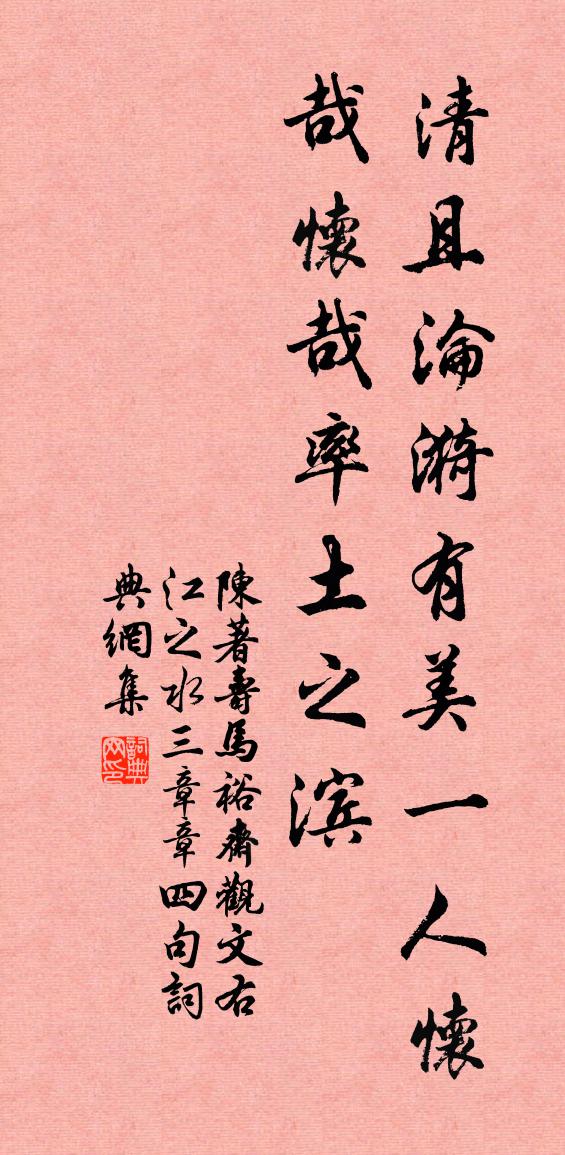 清且淪漪有美一人懷
哉懷哉率土之濱
陳著壽馬裕齋觀文右
江之水三章章四句詞
典網集
詞典
网印